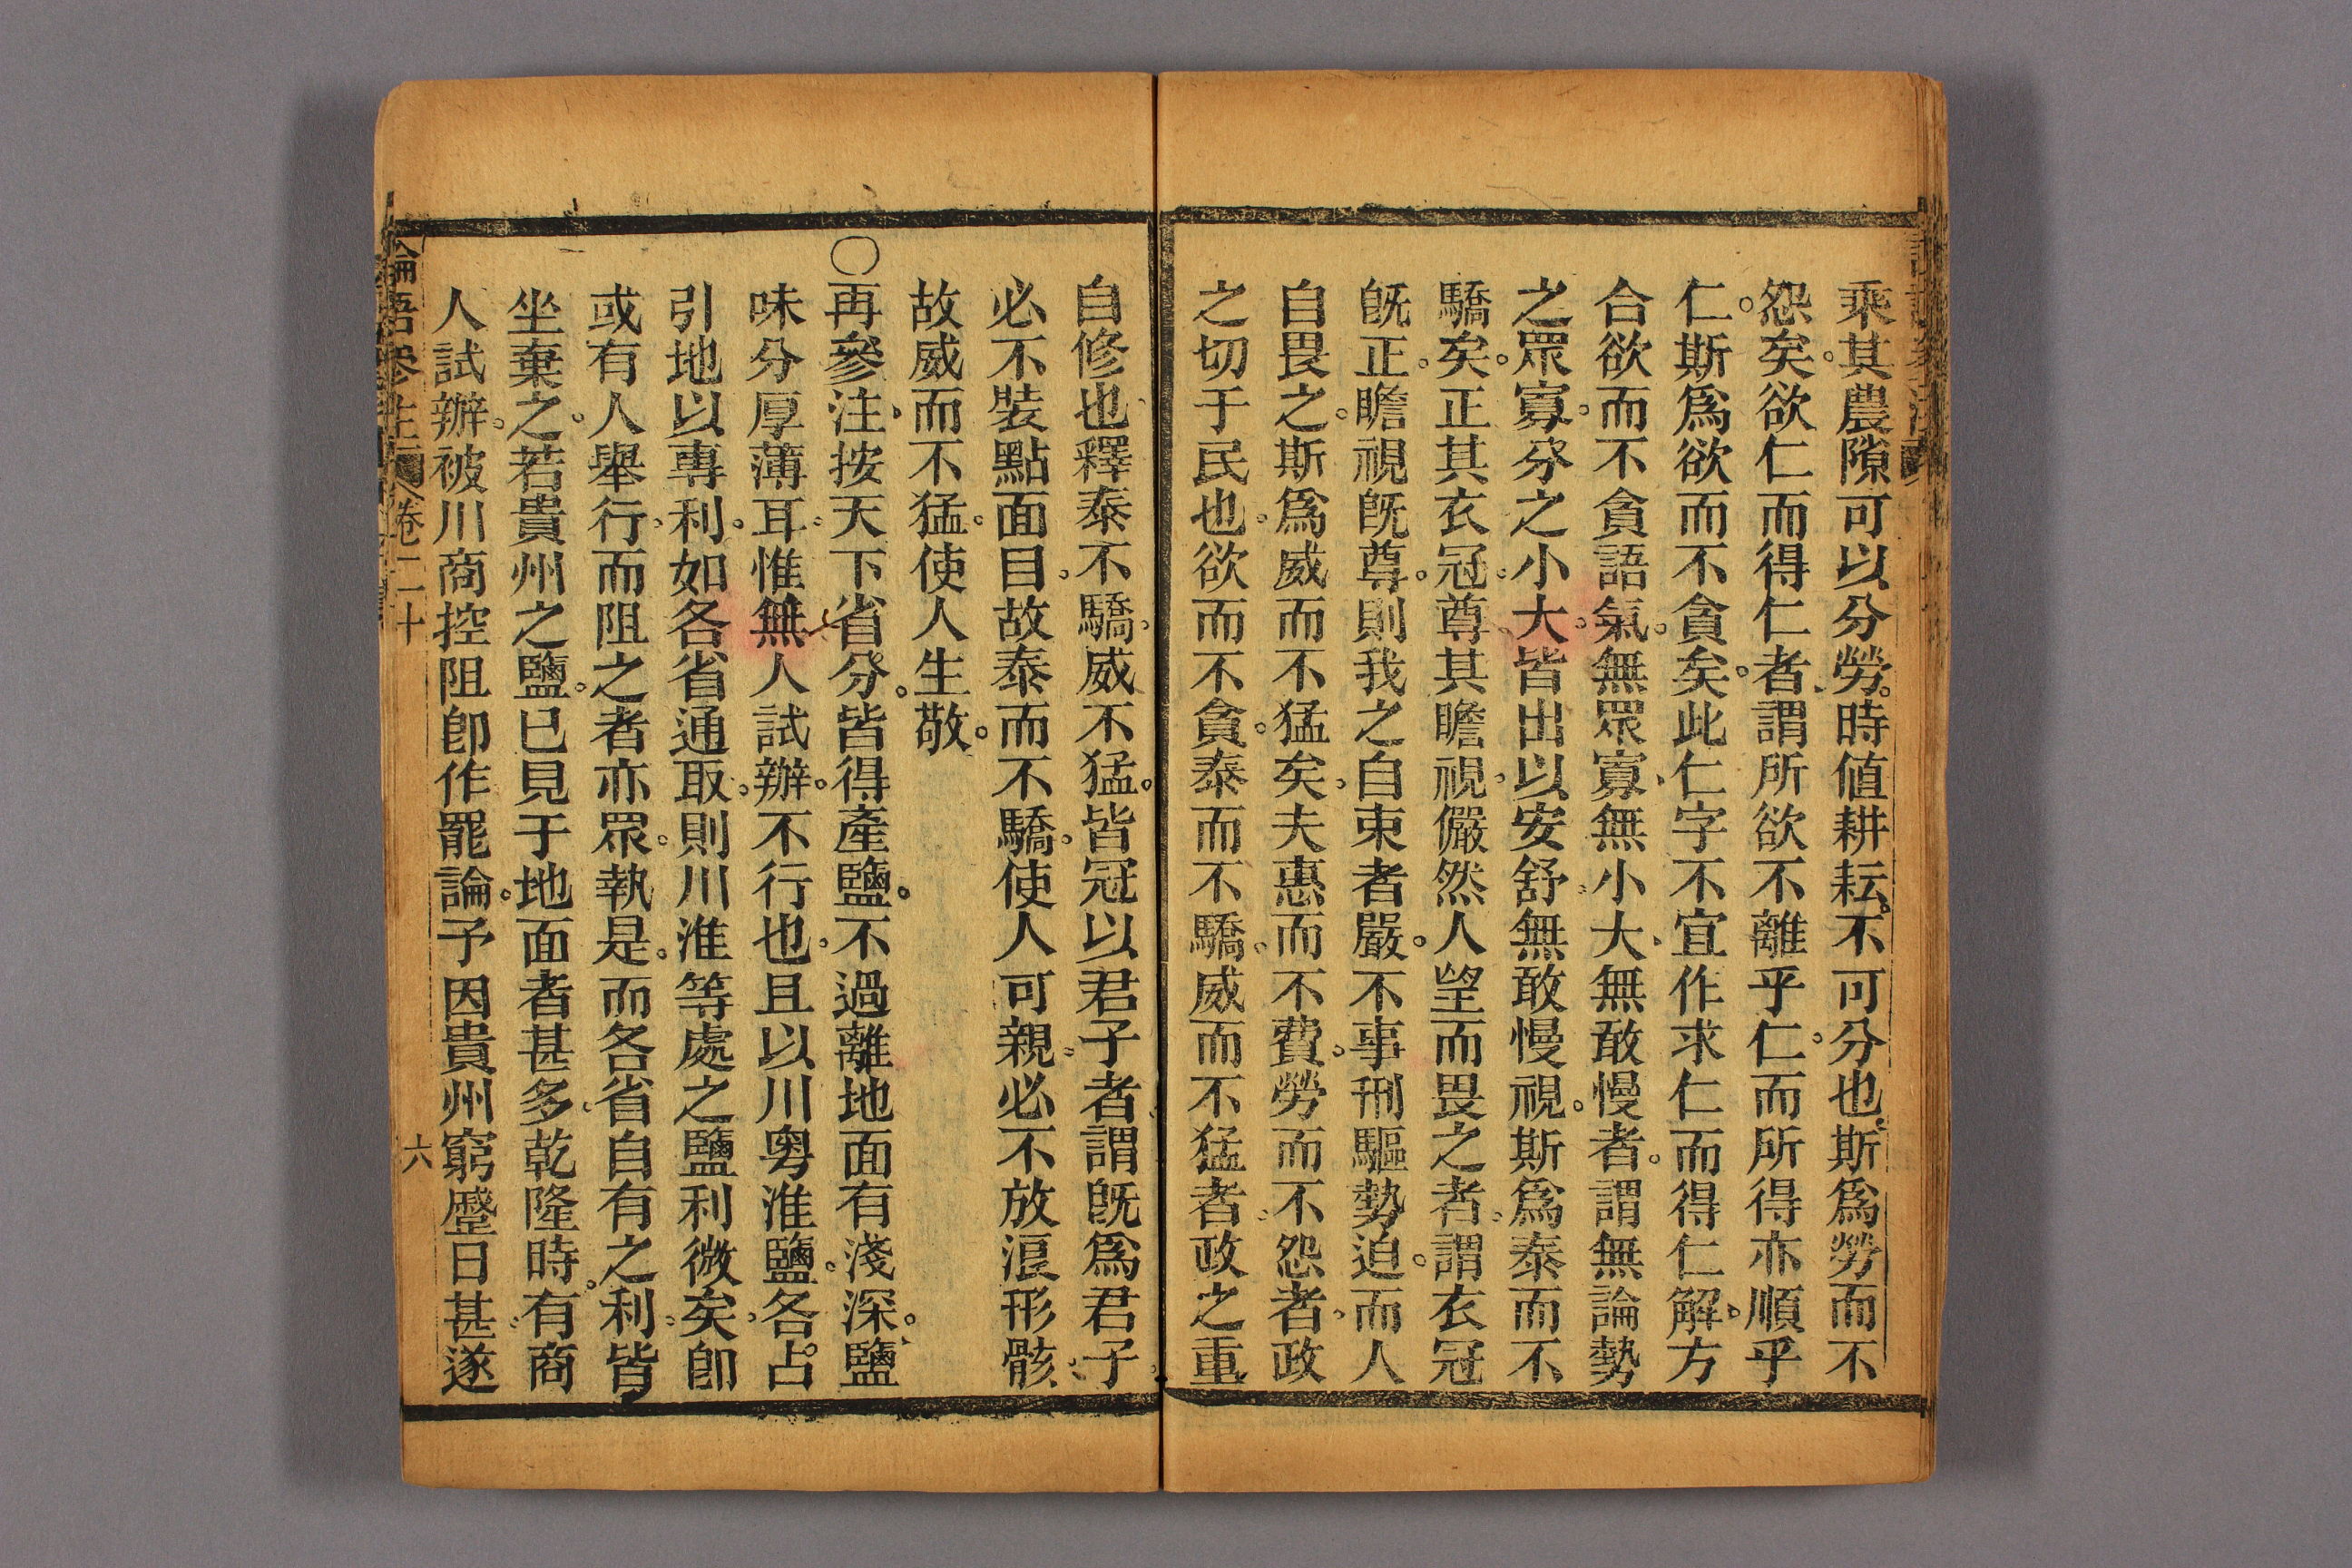 乘其農隙可以分勞。時值耕耘。不可分也。斯爲勞而不
怨矣。欲仁而得仁者、謂所欲不離乎仁。而所得亦順乎
仁。斯爲欲而不貪矣。此仁字不宜作求仁而得仁解。方
合欲而不貪語氣。無眾寡、無小大、無敢慢者。謂無論勢
之眾寡。分之小大。皆出以安舒。無敢慢視。斯爲泰而不
驕矣。正其衣冠。尊其瞻視。儼然人望而畏之者。謂衣冠
旣正。瞻視旣尊。則我之自束者嚴。不事刑驅勢迫。而人
自畏之。斯爲威而不猛矣。夫惠而不費。勞而不怨者、政
之切于民也。欲而不貪。泰而不驕。威而不猛者。政之重
自修也。釋泰不驕。威不猛。皆冠以君子者、謂旣爲君子、
必不裝點面目。故泰而不驕。使人可親。必不放浪形骸、
故威而不猛。使人生敬。
〇再參注、按天下省分。皆得產鹽。不過離地面有淺深。鹽
味分厚薄耳。惟無人試辦。不行也。且以川粵淮鹽。各占
引地以專利。如各省通取。則川淮等處之鹽利微矣。卽
或有人舉行。而阻之者亦眾。執是。而各省自有之利。皆
坐棄之。若貴州之鹽。已見于地面者甚多。乾隆時。有商
人試辦。被川商控阻卽作罷論。予因貴州窮蹙日甚。遂
論語參注
卷二十
六